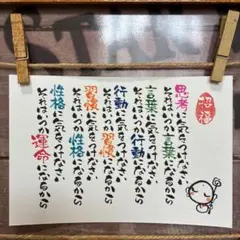 招福
思考に気をつけなさい
それはいつか言葉になるから
言葉に気をつけなさい
それはいつか行動になるから
行動に気をつけなさい
それはいつか習慣になるから
習慣に気をつけなさい
それはいつか性格になるから
性格に気をつけなさい
それはいつか運命になるから